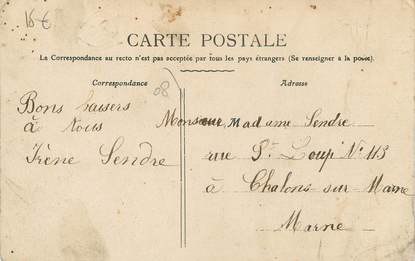 18 €
CARTE POSTALE
La Correspondance au recto n'est pas acceptée par tous les pays étrangers (Se renseigner à la poste).
Correspondance
Adresse
08
Bons baisers
à tous
Irène Sendre
Monsieur, Madame Sendre
rue St Loup No 113
à Chalons-sur-Marne
Marne